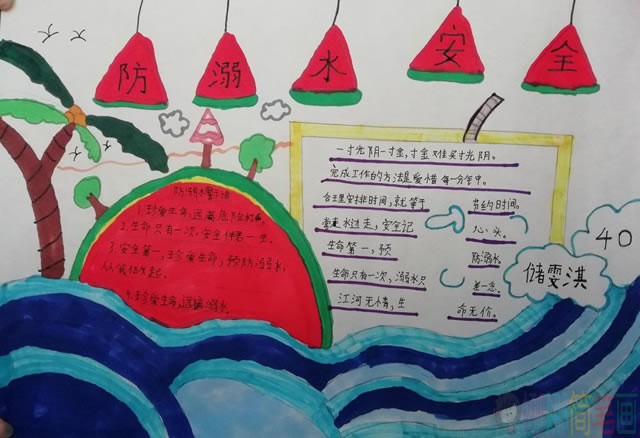 防溺水安全
防溺水警示语
1.珍爱生命,远离危险
2.生命只有一次,安全伴君一生。
3.安全第一,珍爱生命,预防溺水,
从我做起。
4.珍爱生命,远离溺水。
一寸光阴一寸金,寸金难买寸光阴。
完成工作的方法是爱惜每一分钟。
合理安排时间,就等于 节约时间。
水过走,安全记 心头。
生命第一,预 防溺水
生命只有一次,溺水只 差一念。
江河无情,生 命无价。
40
储雯淇
简笔画